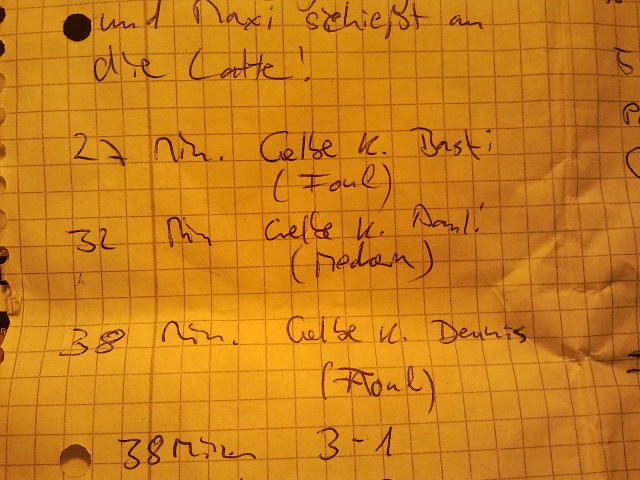 und Maxi schießt an
die Latte!
27 Min. Gelbe K. Basti
(Foul)
32 Min Gelbe K. Pauli
(Meckern)
38 Min. Gelbe K. Dennis
(Foul)
38 Min 3-1